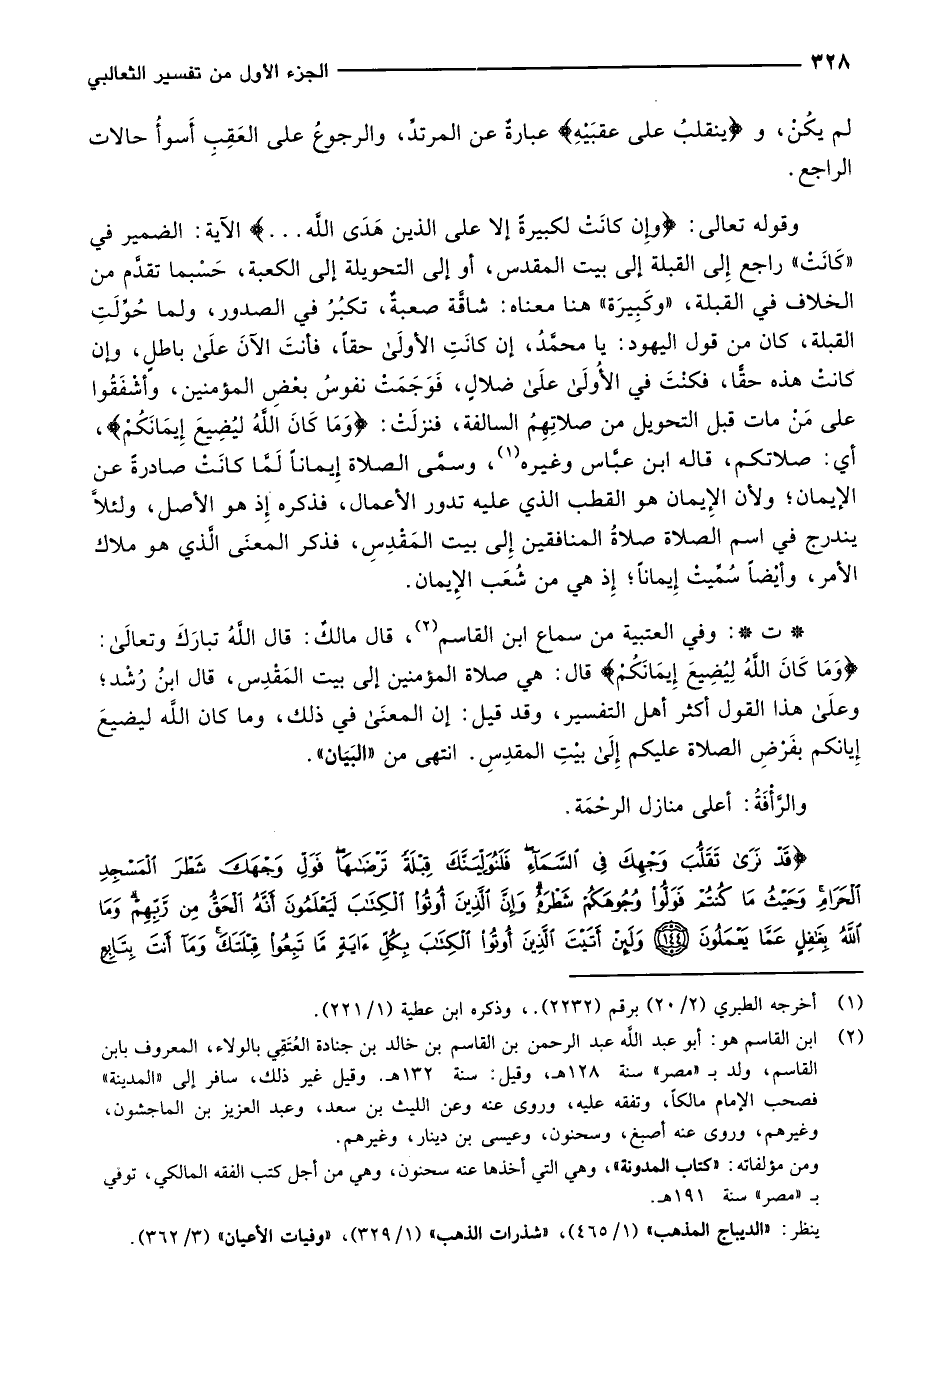 ٣٢٨ الجزء الأول من تفسير الثعالبي
لم يكُنْ، و ﴿ينقلبُ على عقبَيْهِ﴾ عبارةٌ عن المرتدِّ، والرجوعُ على العَقِبِ أَسوأُ حالات
الراجع.
وقوله تعالى: ﴿وإِن كانَتْ لكبيرةً إلا على الذين هَدَى اللَّه...﴾ الآية: الضمير في
«كَانَتْ» راجع إِلى القبلة إِلى بيت المقدس، أو إِلى التحويلة إلى الكعبة، حَسْبما تقدَّم من
الخلاف في القبلة، «وكَبِيرَة» هنا معناه: شاقَّة صعبةٌ، تكبُرُ في الصدور، ولما حُوِّلَتِ
القبلة، كان من قول اليهود: يا محمَّدُ، إِن كانَتِ الأولىٰ حقاً، فأنتَ الآنَ علَىٰ باطلٍ، وإن
كانتْ هذه حقًّا، فكنْتَ في الأُولَىٰ علَىٰ ضلالٍ، فَوَجَمَتْ نفوسُ بعْضِ المؤمنين، وأشْفَقُوا
على مَنْ مات قبل التحويل من صلاتِهِمُ السالفة، فنزلَتْ: ﴿وَمَا كَانَ اللَّهُ لِيُضِيعَ إِيمَانَكُمْ﴾،
أي: صلاتكم، قاله ابن عبَّاس وغيره(١)، وسمَّى الصلاة إِيماناً لَمَّا كانَتْ صادرةً عن
الإِيمان؛ ولأن الإِيمان هو القطب الذي عليه تدور الأعمال، فذكره إِذ هو الأصل، ولئلاَّ
يندرج في اسم الصلاة صلاةُ المنافقين إِلى بيت المَقْدِسِ، فذكر المعنَى الَّذي هو ملاك
الأمر، وأيْضاً سُمِّيتْ إِيماناً؛ إذ هي من شُعَب الإِيمان.
* ت *: وفي العتبية من سماع ابن القاسم(٢)، قال مالكٌ: قال اللَّهُ تبارَكَ وتعالَىٰ:
﴿وَمَا كَانَ اللَّهُ لِيُضِيعَ إِيمَانَكُمْ﴾ قال: هي صلاة المؤمنين إِلى بيت المَقْدِس، قال ابنُ رُشْد؛
وعلَىٰ هذا القول أكثر أهل التفسير، وقد قيل: إن المعنَىٰ في ذلك، وما كان الله ليضيعَ
إيانكم بفَرْضِ الصلاة عليكم إِلَىٰ بيْتِ المقدِسِ. انتهى من «البَيَان».
والرَّأْفَةُ: أعلى منازل الرحْمَة.
﴿قَدْ نَرَىٰ تَقَلُّبَ وَجْهِكَ فِى ٱلسَّمَآءِۖ فَلَنُوَلِّيَنَّكَ قِبْلَةً تَرْضَىٰهَاۚ فَوَلِّ وَجْهَكَ شَطْرَ ٱلْمَسْجِدِ
ٱلْحَرَامِۚ وَحَيْثُ مَا كُنتُمْ فَوَلُّوا۟ وُجُوهَكُمْ شَطْرَهُۥۗ وَإِنَّ ٱلَّذِينَ أُوتُوا۟ ٱلْكِتَٰبَ لَيَعْلَمُونَ أَنَّهُ ٱلْحَقُّ مِن رَّبِّهِمْۗ وَمَا
ٱللَّهُ بِغَٰفِلٍ عَمَّا يَعْمَلُونَ ﴿١٤٤﴾ وَلَئِنْ أَتَيْتَ ٱلَّذِينَ أُوتُوا۟ ٱلْكِتَٰبَ بِكُلِّ ءَايَةٍ مَّا تَبِعُوا۟ قِبْلَتَكَۚ وَمَآ أَنتَ بِتَابِعٍ
(١) أخرجه الطبري (٢٠/٢) برقم (٢٢٣٢).، وذكره ابن عطية (٢٢١/١).
(٢) ابن القاسم هو: أبو عبد اللَّه عبد الرحمن بن القاسم بن خالد بن جنادة العُتَقِي بالولاء، المعروف بابن
القاسم، ولد بـ «مصر» سنة ١٢٨هـ، وقيل: سنة ١٣٢هـ. وقيل غير ذلك، سافر إلى «المدينة»
فصحب الإمام مالكاً، وتفقه عليه، وروى عنه وعن الليث بن سعد، وعبد العزيز بن الماجشون،
وغيرهم، وروى عنه أصبغ، وسحنون، وعيسى بن دينار، وغيرهم.
ومن مؤلفاته: «كتاب المدونة»، وهي التي أخذها عنه سحنون، وهي من أجل كتب الفقه المالكي، توفي
بـ «مصر» سنة ١٩١هـ.
ينظر: «الديباج المذهب» (٤٦٥/١)، «شذرات الذهب» (٣٢٩/١)، «وفيات الأعيان» (٣٦٢/٣).